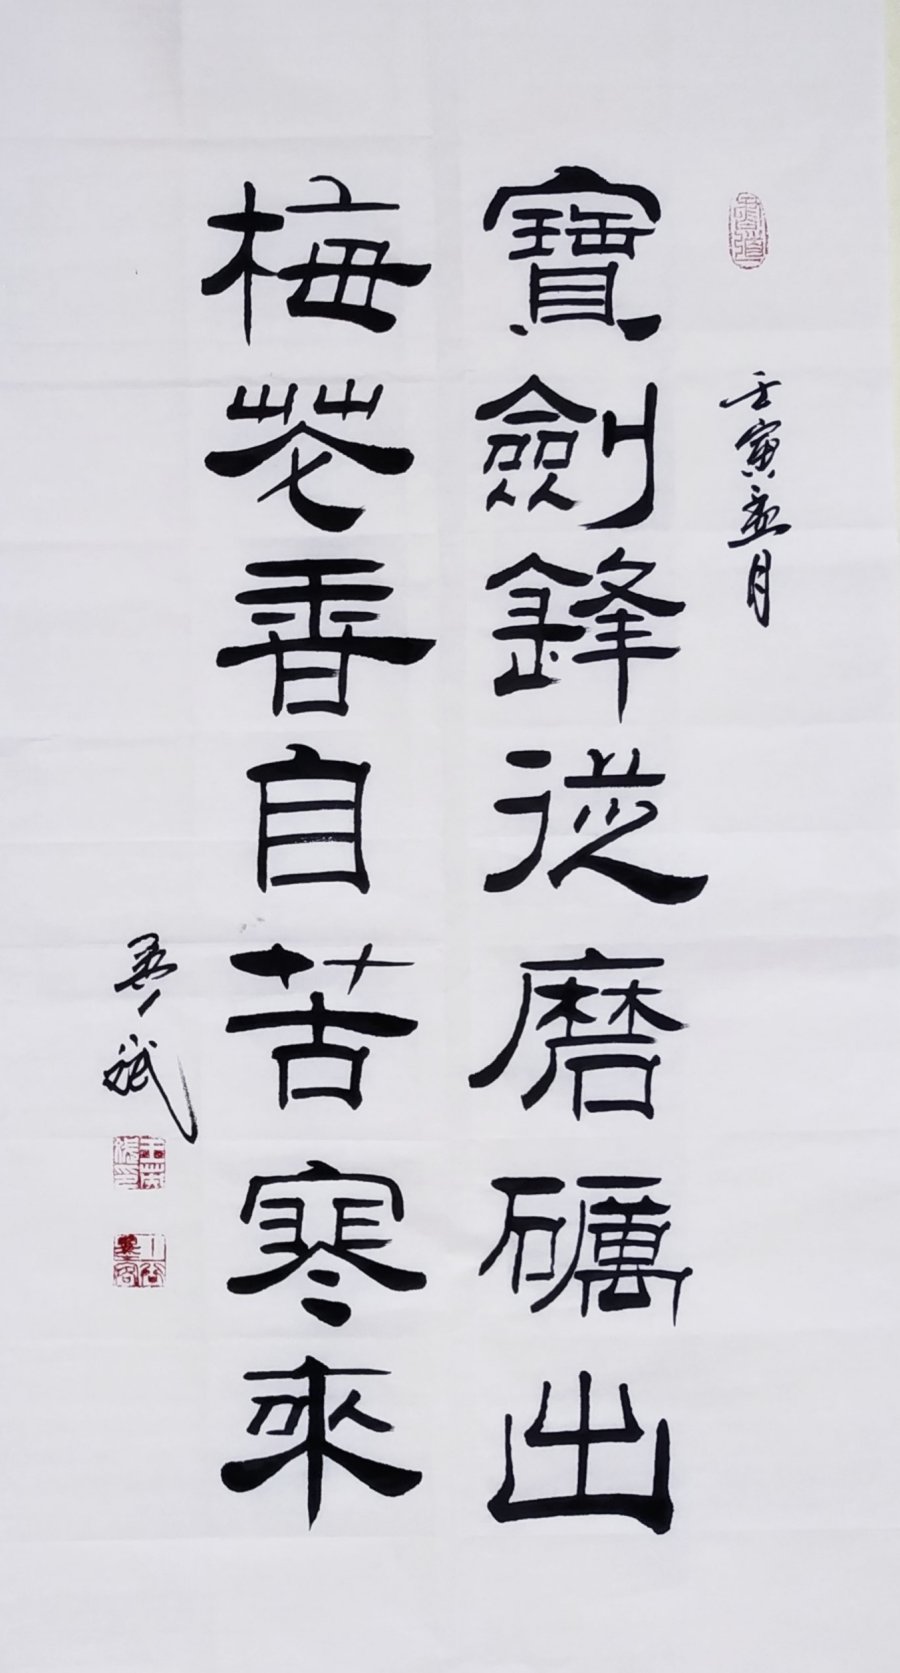 壬寅孟月
寶劍鋒從磨礪出
梅花香自苦寒來